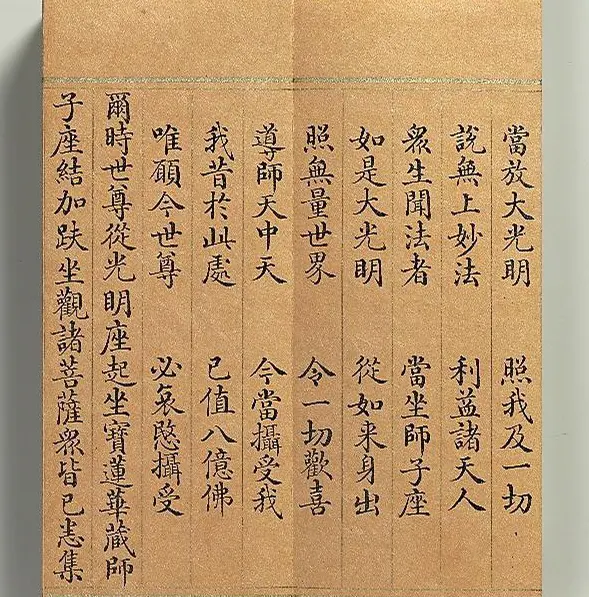 當放大光明 照我及一切
說無上妙法 利益諸天人
衆生聞法者 當坐師子座
如是大光明 從如来身出
照無量世界 令一切歡喜
導師天中天 今當攝受我
我昔於此處 已值八億佛
唯願今世尊 必哀愍攝受
爾時世尊從光明座起坐寶蓮華藏師
子座結加趺坐觀諸菩薩衆皆已悉集